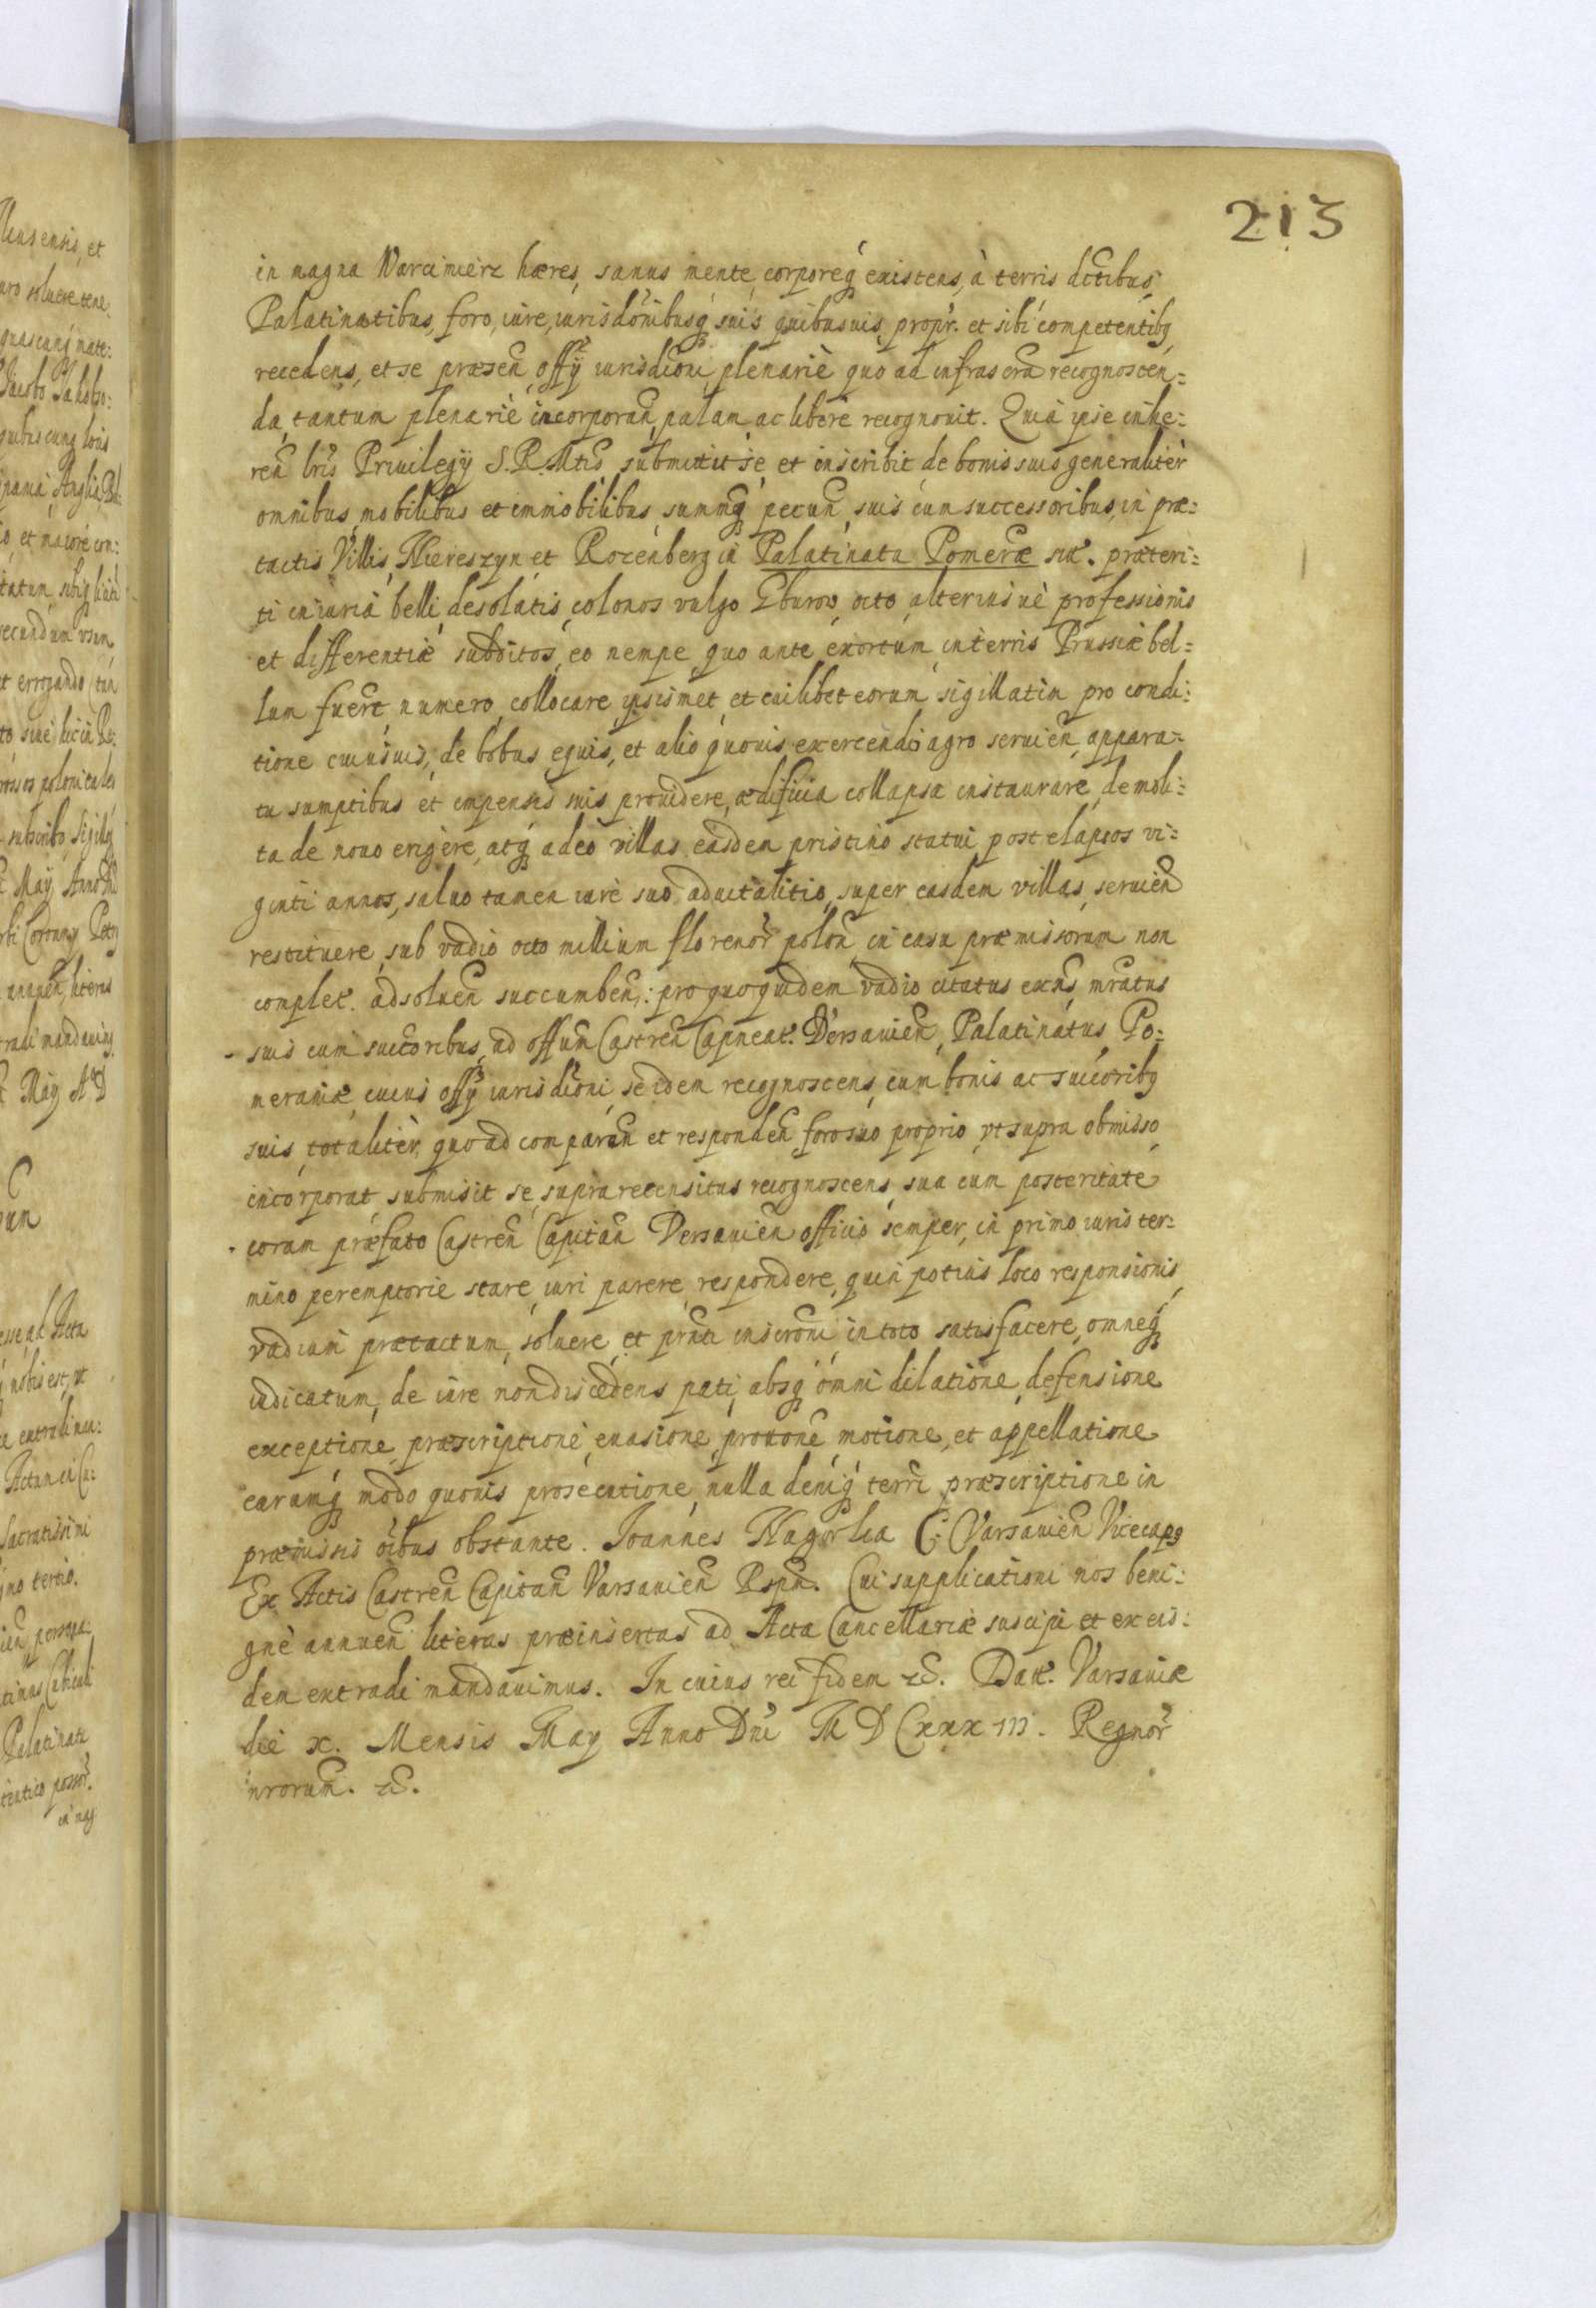 213
in magna Warcimierz hæres, sanus mente, corporeq́ existens, à terris dctibus,
Palatinatibus, foro, iure, iurisdõnibusq́ suis quibusuis, propr. et sibi competentibq
recedens, et se præsen offÿ iurisdicni, plenariè quo ad infrascra recognoscen=
da, tantum plenariè incorporan, palam ac liberè recognouit. Quià ipse inhę=
ren lris Priuilegÿ S. R. Mtis submittit se et inscribit de bonis suis generalitèr
omnibus, mobilibus et immobilibus, summq́ pecun, suis cum successoribus, in præ=
tactis Villis, Niereszyn et Rozenberg in Palatinatu Pomeræ sit. præteri=
ti iniuriâ belli, desolatis, colonos vulgo Gburow octo, alterius uè professionis
et differentiæ subditos, eo nempe, quo ante exortum, in terris Prussiæ bel=
lum fuert numero, collocare, ipsismet, et cuilibet eorum sigillatim pro condi=
tione cuiusuis, de bobus, equis, et alio quouis, exercendo agro seruien, appara=
tu sumptibus et impensis suis prouidere, ædificia collapsa instaurare, demoli=
ta de nouo erigere, atq́ adeò villas easdem pristino statui post elapsos vi=
ginti annos, saluo tamen iure suo aduitalitio, super easdem villas, seruien
restituere, sub vadio octo millium florenor polon, in casu præmissorum non
complet. ad soluen succumben: pro quoquidem vadio citatus exns, mratus
suis cum succoribus, ad offum Castren Capneat. Dersauien, Palatinatus Po=
meraniæ, cuius offÿ iurisdicioni, se idem recognoscens, cum bonis ac succoribq
suis, totalitèr, quo ad comparen et responden foro suo proprio, vt supra obmisso,
incorporat, submisit se, supra recensitus recognoscens, sua cum posteritate
coram præfato Castren Capitan Dersauien officio semper, in primo iuris ter=
mino peremptorie stare, iuri parere, respondere, quin potius loco responsionis,
vadium prætactum, soluere, et prnti inscroni in toto satisfacere, omneq́
iudicatum, de iure non discedens pati, absq́ omni dilatione, defensione
exceptione, præscriptione, euasione, prouone, motione, et appellatione
earumq́ modo quouis prosecutione, nulla deniq́ terri præscriptione in
præmissis oibus obstante. Ioannes Nagorka C: Varsauien Vicecapq
Ex Actis Castren Capitan Varsauien Rspn. Cui supplicationi nos beni=
gnè annuen literas præinsertas ad Acta Cancellariæ suscipi et ex eis=
dem extradi mandauimus. In cuius rei fidem etc. Dat. Varsauiæ
die x. Mensis May Anno Dni M D C xxx III. Regnor
nrorum. etc.